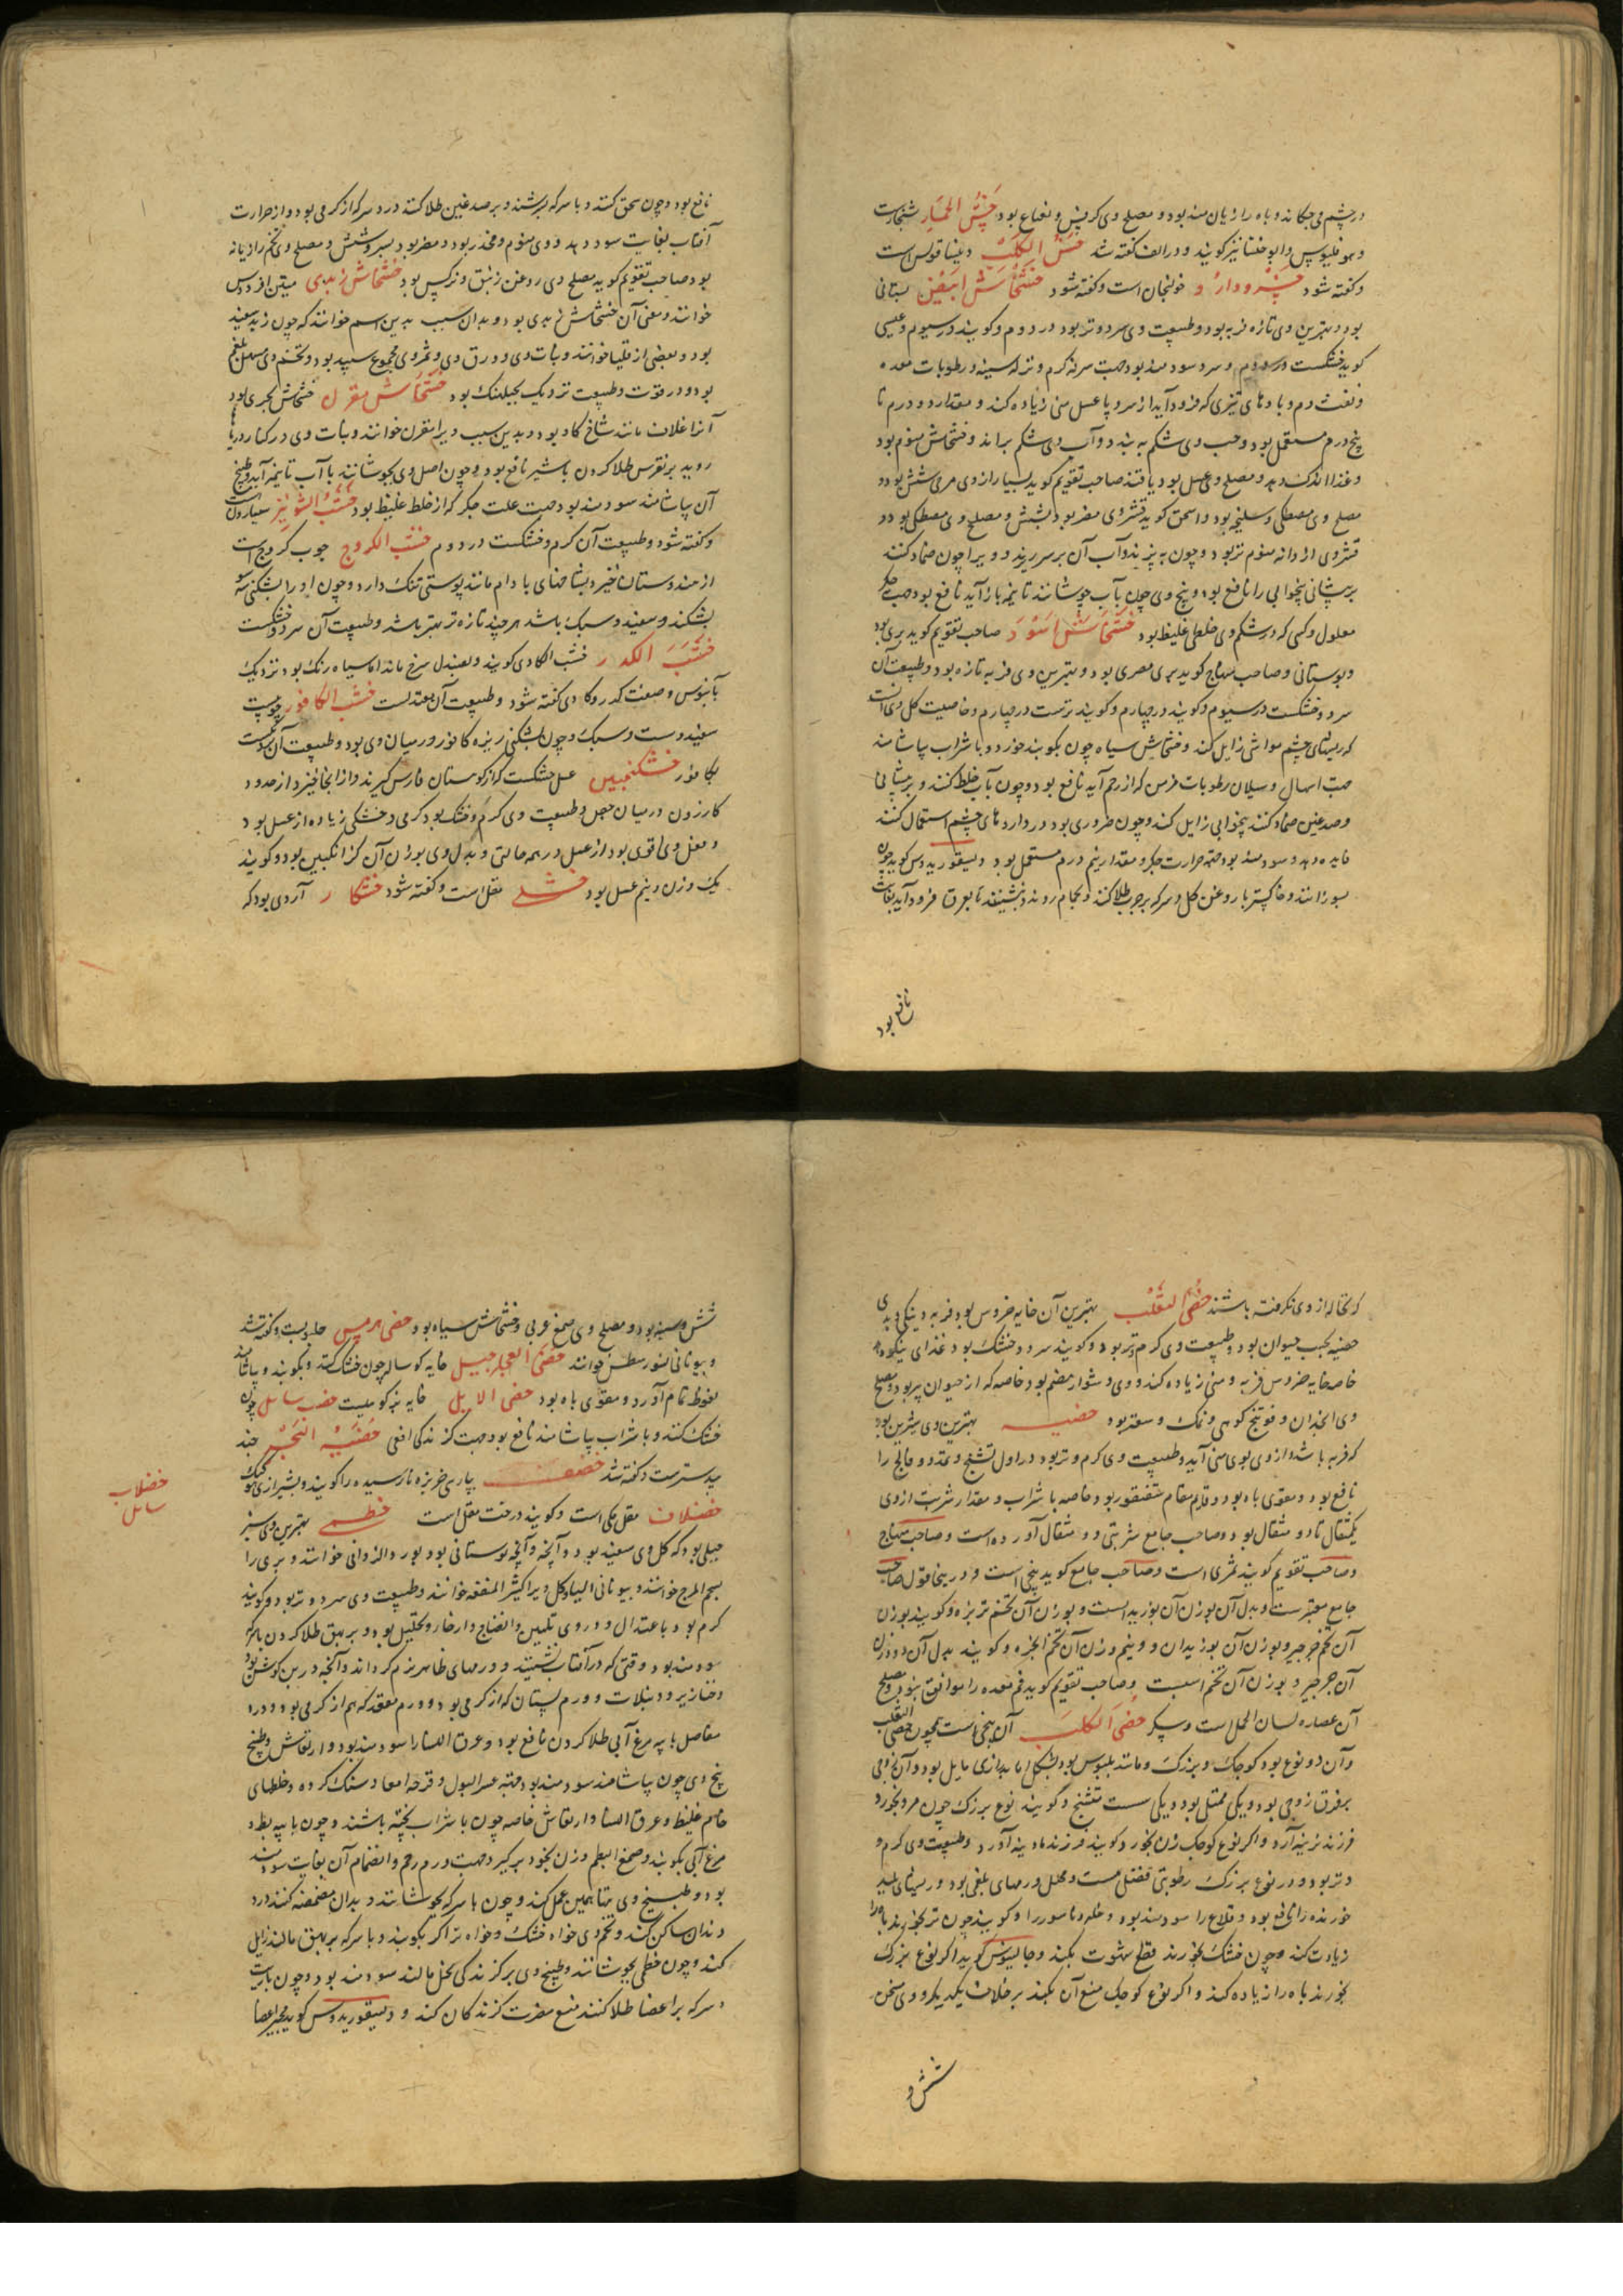 در چشم می چکاند و باه را زیان مند بود و مصلح وی کرفس و نعناع بود خس الحمار شنجارست
و هو فلیوس و ابو خلسا نیز کویند و در الف کفته شد خس الکلب دینساقوس است
و کفته شود خسرودارو خولنجان است و کفته شود خشخاش ابیض بستانی
بود و بهترین وی تازه فربه بود و طبیعت وی سرد و تر بود در دوم و کویند در سیوم و عیسی
کوید خشکست در دوم و سرد سودمند بود جهت سرفه کرم و نزله سینه و رطوبات معده
و نفث دم و بادهای تیزی که فرود آید از سر و با عسل منی زیاده کند و مقدار دو درم تا
پنج درم مستعمل بود و حب وی شکم به بندد و آب وی شکم براند و خشخاش منوم بود
و غذا اندک دهد و مصلح وی عسل بود یا قند صاحب تقویم کوید بسیار از وی مری شش بود و
مصلح وی مصطکی و سلیخه بود و اسحق کوید قشر وی مضر بود بشش و مصلح وی مصطکی بود و
قشر وی از دانه منوم تر بود و چون به پزند و آب آن بر سر ریزند و ویرا چون ضماد کنند
بر پیشانی بیخوابی را نافع بود و بیخ وی چون بآب جوشانند تا بنیمه باز آید نافع بود جهت جکر
معلول و کسی که در شکم وی خلطی غلیظ بود خشخاش اسود صاحب تقویم کوید بری بود
و بوستانی و صاحب منهاج کوید بری مصری بود و بهترین وی فربه تازه بود و طبیعت آن
سرد و خشکست در سیوم و کویند در چهارم و کویند ترست در چهارم و خاصیت کل وی آنست
که ریشهای چشم مواشی زایل کند و خشخاش سیاه چون بکوبند خرد و با شراب بیاشامند
جهت اسهال و سیلان رطوبات مزمن که از رحم آید نافع بود و چون بآب خلط کنند و بر پیشانی
و صدغین ضماد کنند بیخوابی زایل کند و چون ضروری بود در داروهای چشم استعمال کنند
فایده دهد و سودمند بود جهة حرارت جکر و مقدار نیم درم مستعمل بود و دیسقوریدوس کوید چون
بسوزانند و خاکستر با روغن کل و سرکه بر جرب طلا کنند و بحمام روند و بنشینند تا بعرق فرود آید بغایت
نافع بود
نافع بود و چون سحق کنند و با سرکه بسرشند و بر صدغین طلا کنند درد سر که از کرمی بود و از حرارت
آفتاب بغایت سود دهد و وی منوم و مخدر بود و مضر بود بسر و شش و مصلح وی تخم رازیانه
بود و صاحب تقویم کوید مصلح وی روغن زنبق و نرکس بود خشخاش زبدی میقن افرودس
خوانند و معنی آن خشخاش زبدی بود و بدان سبب بدین اسم خوانند که چون زبد سفید
بود و بعضی ارقلیا خوانند و نبات وی و ورق وی و ثمر وی مجموع سپید بود و تخم وی مسهل بلغم
بود و در قوت و طبیعت نزدیک بجبلهنک بود خشخاش مقرن خشخاش بحری بود
آنرا غلاف مانند شاخ کاو بود و بدین سبب ویرا مقرن خوانند و نبات وی در کنار دریاها
روید بر نقرس طلا کردن با شیر نافع بود و چون اصل وی بجوشانند با آب تا بنیمه آید و طبیخ
آن بیاشامند سودمند بود جهت علت جکر که از خلط غلیظ بود خشب الشونیز سعیارون است
و کفته شود و طبیعت آن کرم و خشکست در دوم خشب الکروج جوب کروج است
از هندوستان خیزد بشاخهای بادام مانند پوستی تنک دارد و چون او را بشکنی سهل
بشکند و سفید و سبک باشد هرچند تازه تر بهتر باشد و طبیعت آن سرد و خشکست
خشب الکدر خشب الکادی کویند و بصندل سرخ ماند اما سیاه رنک بود نزدیک
بآبنوس و صفت کدر و کادی کفته شود و طبیعت آن معتدلست خشب الکافور چوبیست
سفید و ست و سبک و چون بشکنی ریزه کافور در میان وی بود و طبیعت آن نزدیکست
بکافور خشکنجبین عسل خشکست که از کوهستان فارس کیرند و از آنجا خیزد از حدود
کازرون در میان جبل و طبیعت وی کرم و خشک بود کرمی و خشکی زیاده از عسل بود
و فعل وی اقوی بود از عسل در همه حالتی و بدل وی بوزن آن کزانکبین بود و کویند
یک وزن و نیم عسل بود خشل مقل است و کفته شود خشکار آردی بود که
که نخاله از وی نکرفته باشند خصی الثعلب بهترین آن خایه خروس بود فربه و نیکی و بدی
خصیه بحسب حیوان بود و طبیعت وی کرم و تر بود و کویند سرد و خشک بود غذای نیکو دهد
خاصه خایه خروس فربه و منی زیاده کند و وی دشوار هضم بود خاصه که از حیوان پیر بود و مصلح
وی انجدان و فوتنج کوهی و نمک و سعتر بود خصیه بهترین وی شیرین بود
که فربه باشد و از وی بوی منی آید و طبیعت وی کرم و تر بود در اول تشنج و تمدد و فالج را
نافع بود و مقوی باه بود و قایم مقام سقنقور بود خاصه با شراب و مقدار شربت از وی
یکمثقال تا دو مثقال بود و صاحب جامع شربتی دو مثقال آورده است و صاحب منهاج
و صاحب تقویم کویند ثمری است و صاحب جامع کوید بیخی است و درینجا قول صاحب
جامع معتبرست و بدل آن بوزن آن بوزیدانست و بوزن آن تخم تربزه و کویند بوزن
آن تخم جرجیر و بوزن آن بوزیدان و نیم وزن آن تخم انجره و کویند بدل آن دو وزن
آن جرجیر و بوزن آن تخم اسپست و صاحب تقویم کوید فم معده را موافق نبود و مصلح
آن عصاره لسان الحمل است و سکر خصی الکلب آن بیخی است همچون خصی الثعلب
و آن دو نوع بود کوچک و بزرک و مانند بلبوس بود بشکل اما بدرازی مایل بود و آن زوجی
بر فوق زوجی بود و یکی ممتلی بود و یکی سست متشنج و کویند نوع بزرک چون مرد بخورد
فرزند نرینه آرد و اکر نوع کوچک زن بخورد کویند فرزند مادینه آورد و طبیعت وی کرم
و تر بود و در نوع بزرک رطوبتی فضلی هست و محلل ورمهای بلغمی بود و ریشهای پلید
خورنده را نافع بود و قلاع را سودمند بود و نمله و ناسور را و کویند چون تر بخورند باه را
زیادت کند و چون خشک بخورند قطع شهوت بکند و جالینوس کوید اکر نوع بزرک
بخورند باه را زیاده کند و اکر نوع کوچک منع آن بکند بر خلاف یکدیکر و وی سخن
شش و
شش و سینه بود و مصلح وی صمغ عربی و خشخاش سیاه بود خصی هرمس حلبوبست و کفته شد
و بیونانی لنورسطس خوانند خصی العجل جبیل خایه کوساله چون خشک کنند و بکوبند و بیاشامند
نعوظ تمام آورد و مقوی باه بود خصی الایل خایه بز کوهیست خصب سایل چون
خشک کنند و با شراب بیاشامند نافع بود جهت کزندکی افعی خصیة البحر جند
بیدسترست و کفته شد خضف بپارسی خربزه نارسیده را کویند و بشیرازی کبک
خضلاف مقل مکی است و کویند درخت مقل است خطمی بهترین وی سبز
جبلی بود که کل وی سفید بود و آنچه بوستانی بود بورد الزوانی خوانند و بری را
بسحم المرج خوانند و بیونانی الیا و کل ویرا کثیر المنفعه خوانند و طبیعت وی سرد و تر بود و کویند
کرم بود باعتدال و در وی تلیین و انضاج و ارخا و تحلیل بود و بر بهق طلا کردن با سرکه
سودمند بود وقتی که در آفتاب نشینند و ورمهای ظاهر نرم کرداند و آنچه در بن کوش بود
و خنازیر و دبیلات و ورم پستان که از کرمی بود و ورم مقعد که هم از کرمی بود و درد
مفاصل با پیه مرغ آبی طلا کردن نافع بود و عرق النسا را سودمند بود و ارتعاش و طبیخ
بیخ وی چون بیاشامند سودمند بود جهة عسر البول و قرحه امعا و سنک کرده و خلطهای
خام غلیظ و عرق النسا و ارتعاش خاصه چون با شراب پخته باشند و چون با پیه بط و
مرغ آبی بکوبند و صمغ البطم و زن بخود برکیرد جهت ورم رحم و انضمام آن بغایت سودمند
بود و طبیخ وی تنها همین عمل کند و چون با سرکه بجوشانند و بدان مضمضه کنند درد
دندان ساکن کند و تخم وی خواه خشک و خواه تر اکر بکوبند و با سرکه بر بهق مالند زایل
کند و چون خطمی بجوشانند و طبیخ وی بر کزندکی نحل مالند سودمند بود و چون با زیت
و سرکه بر اعضا طلا کنند منع مضرت کزندکان کند و دیسقوریدوس کوید
خضلاب
سایل